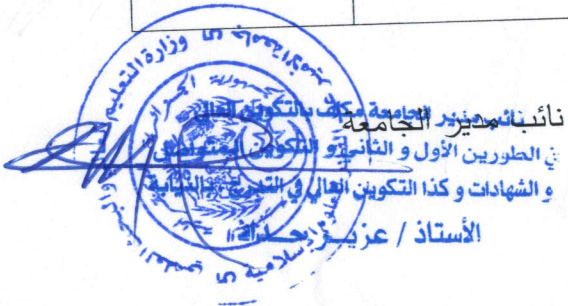 نائب مدير الجامعة
نائب مدير الجامعة مكلف بالتكوين العالي
في الطورين الأول و الثاني و التكوين المتواصل
و الشهادات و كذا التكوين العالي في التدرج بالنيابة
الأستاذ / عزيز
وزارة التعليم العالي والبحث العلمي
جامعة الأمير